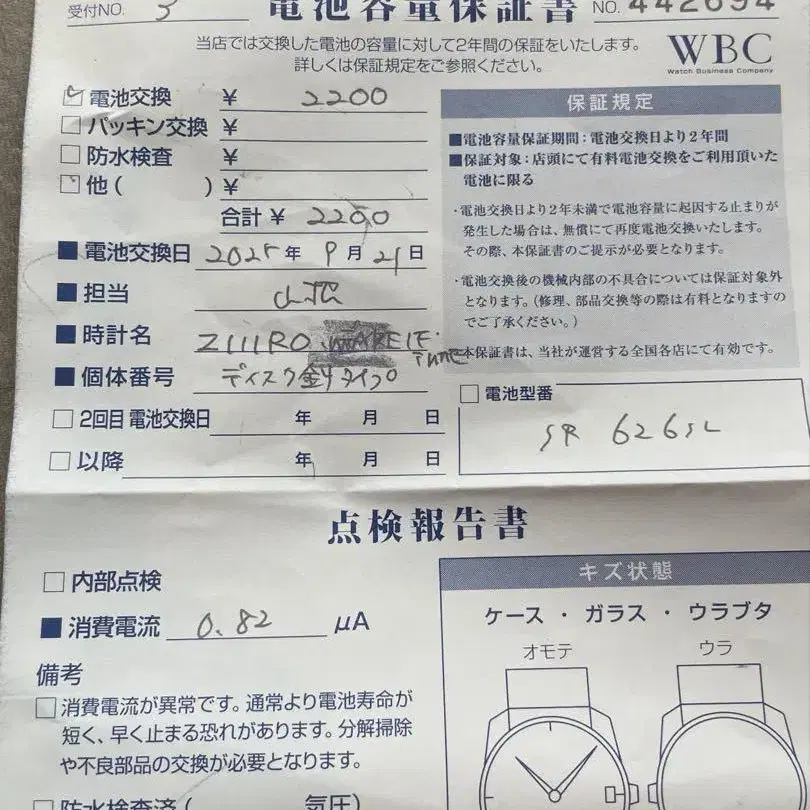 受付NO. 3
電池容量保証書
NO. 442694
当店では交換した電池の容量に対して2年間の保証をいたします。
詳しくは保証規定をご参照ください。
WBC
Watch Business Company
電池交換 ¥ 2200
パッキン交換 ¥
防水検査 ¥
他( )¥
合計 ¥ 2200
電池交換日 2025年 9月21日
担当
時計名 ZIIIRO
TIME
個体番号 ディスク針タイプ
2回目 電池交換日 年 月 日
以降 年 月 日
保証規定
■電池容量保証期間:電池交換日より2年間
■保証対象:店頭にて有料電池交換をご利用頂いた
電池に限る
・電池交換日より2年未満で電池容量に起因する止まりが
発生した場合は、無償にて再度電池交換いたします。
その際、本保証書のご提示が必要となります。
・電池交換後の機械内部の不具合については保証対象外
となります。(修理、部品交換等の際は有料となりますの
でご了承ください。)
本保証書は、当社が運営する全国各店にて有効です。
電池型番
SR 626SL
点検報告書
内部点検
消費電流 0.82 μA
備考
消費電流が異常です。通常より電池寿命が
短く、早く止まる恐れがあります。分解掃除
や不良部品の交換が必要となります。
防水検査済( 気圧)
キズ状態
ケース・ガラス・ウラブタ
オモテ ウラ